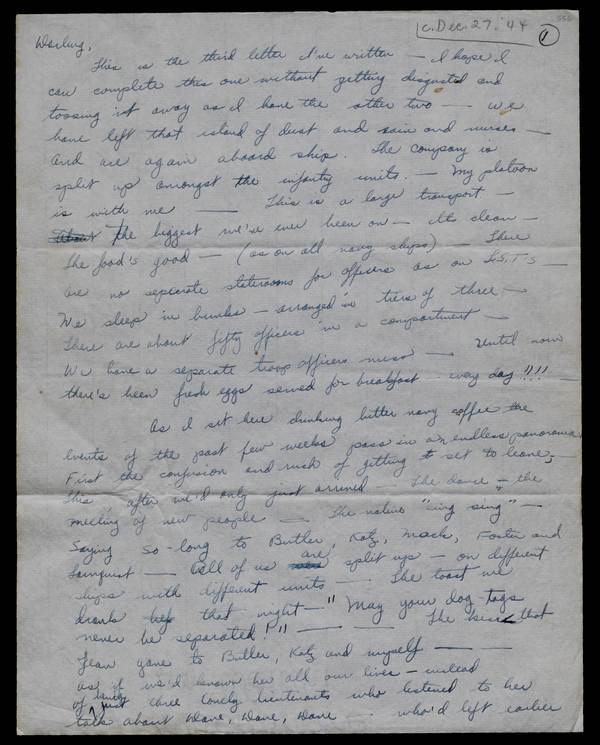 c. Dec. 27. '44
1
Darling,
This is the third letter I've written — I hope I
can complete this one without getting disgusted and
tossing it away as I have the other two — we
have left that island of dust and rain and nurses —
And are again aboard ship. The company is
split up amongst the infantry units. — My platoon
is with me — This is a large transport —
About the biggest we've ever been on — Its clean —
The food's good — (as on all navy ships) — There
are no separate staterooms for officers as on LSTs —
We sleep in bunks — arranged in tiers of three —
There are about fifty officers in a compartment —
We have a separate troop officers mess — Until now
there's been fresh eggs served for breakfast — every day!!!! —
As I sit here drinking bitter navy coffee the
events of the past few weeks pass in an endless panorama.
First the confusion and rush of getting set to leave, —
this after we'd only just arrived — The dance — the
meeting of new people — The natives "sing sing" —
Saying so-long to Butler, Katz, Mack, Foster and
— All of us are split up — on different
ships with different units — The toast we
drank that night — "May your dog tags
never be separated!" — — The kiss that
Jean gave to Butler, Katz and myself — —
as if we'd known her all our lives — instead
of being just three lonely lieutenants who listened to her
talk about Dave, Dave, Dave — who'd left earlier